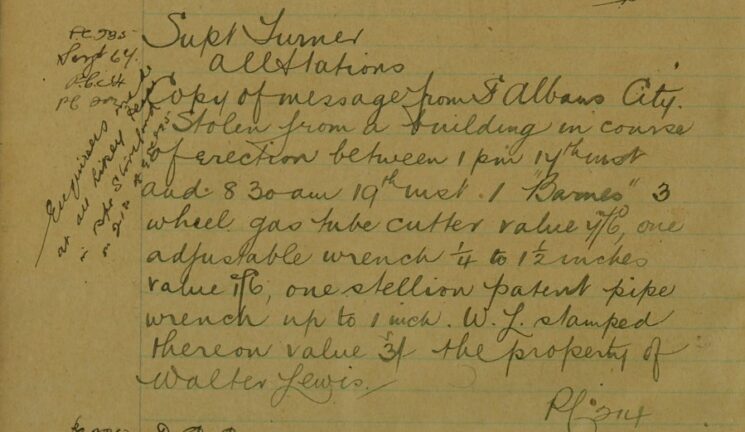 P.C. 285
Sergt 64.
P.C. 64
PC 202
Enquiries made
at all likely
in Bps Stortford
Supt Turner
All Stations
Copy of message from St Albans City.
"Stolen from a building in course
of erection between 1 pm 17th inst
and 8 30 am 19th inst. 1 "Barnes" 3
wheel gas tube cutter value 7/6, one
adjustable wrench 1/4 to 1 1/2 inches
value 7/6, one stellion patent pipe
wrench up to 1 inch. W. L. stamped
thereon value 5/- the property of
Walter Lewis.
PC 214